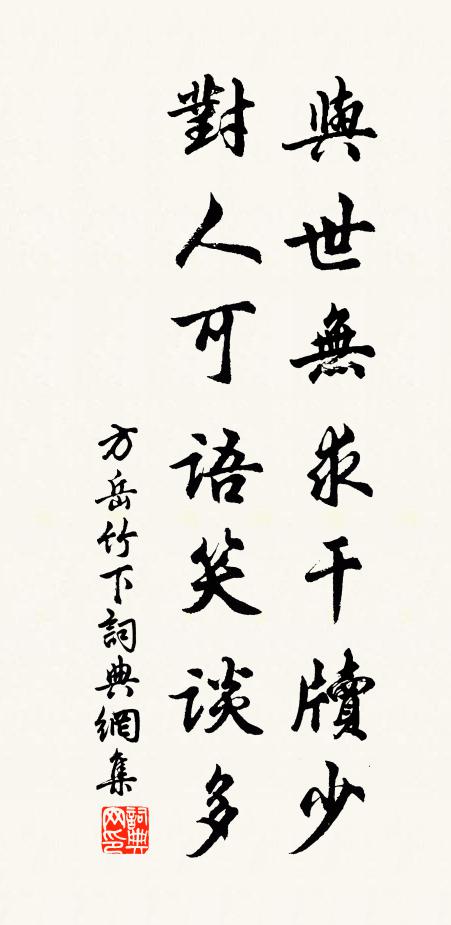 與世無求干牘少
對人可語笑談多
方岳竹下詞典網集
詞典
网印